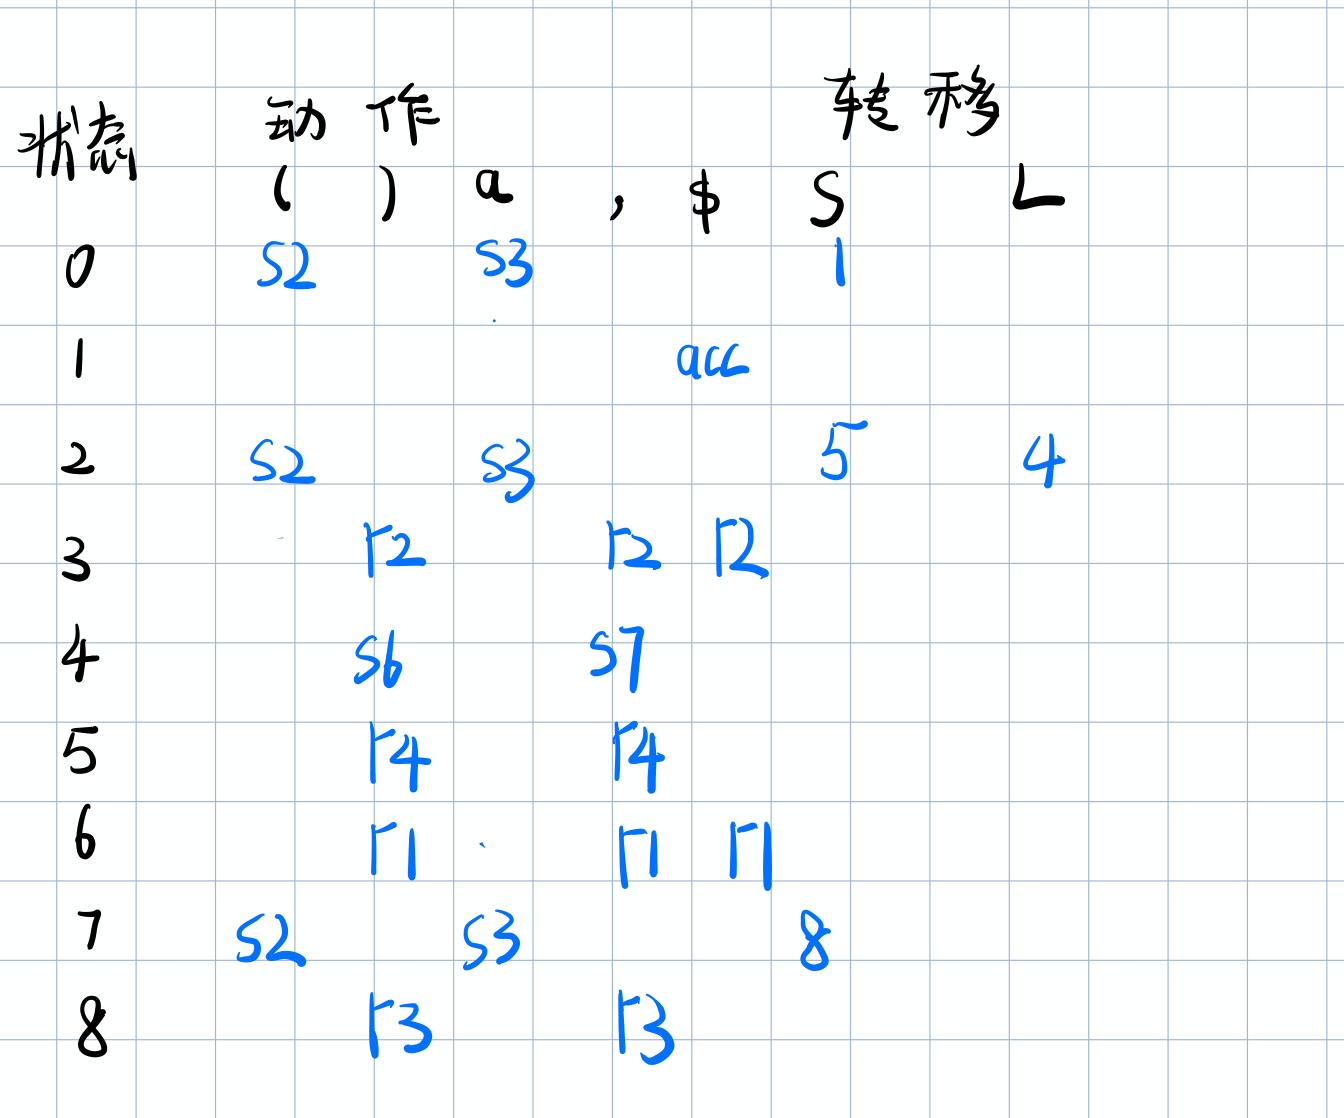 状态 动作 转移
( ) a , $ S L
0 S2 S3 1
1 acc
2 S2 S3 5 4
3 r2 r2 r2
4 S6 S7
5 r4 r4
6 r1 r1 r1
7 S2 S3 8
8 r3 r3